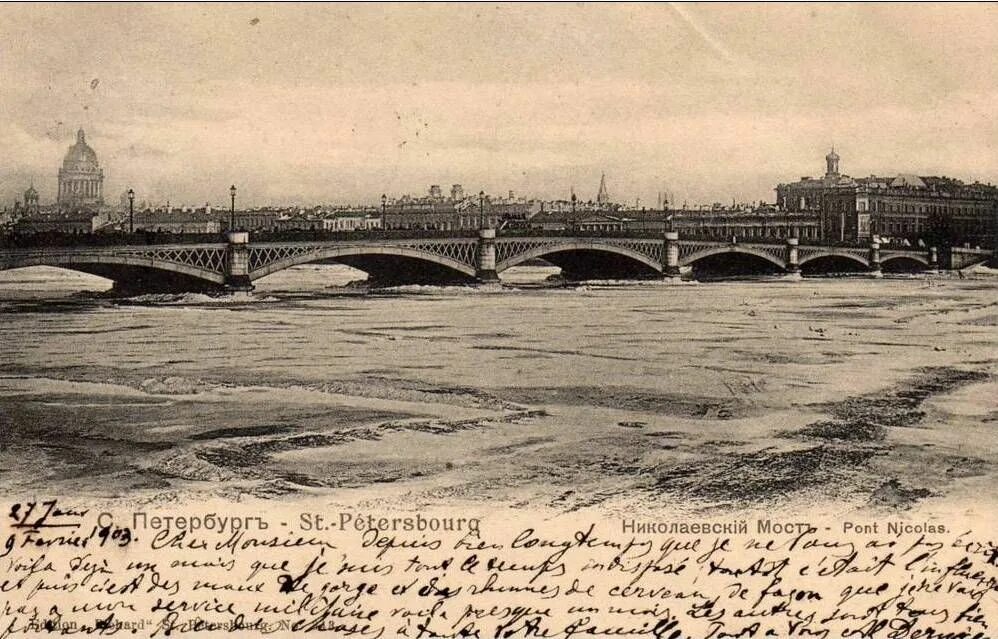 С. Петербургъ - St.-Pétersbourg
Николаевскій Мостъ - Pont Nicolas.
27 Janv
9 Février 1903. Cher Monsieur Depuis bien longtemps que je ne vous ai pas
voila déjà un mois que je suis tout le temps indisposé, tantot c'était l'influenza
et puis c'est des maux de gorge et des rhumes de cerveau, de façon que je ne vais
pas a mon service militaire voila presque un mois. Les autres sont tous bien
Edition „Richard" St. Pétersbourg. No
choses à toute votre famille. Tout a vous